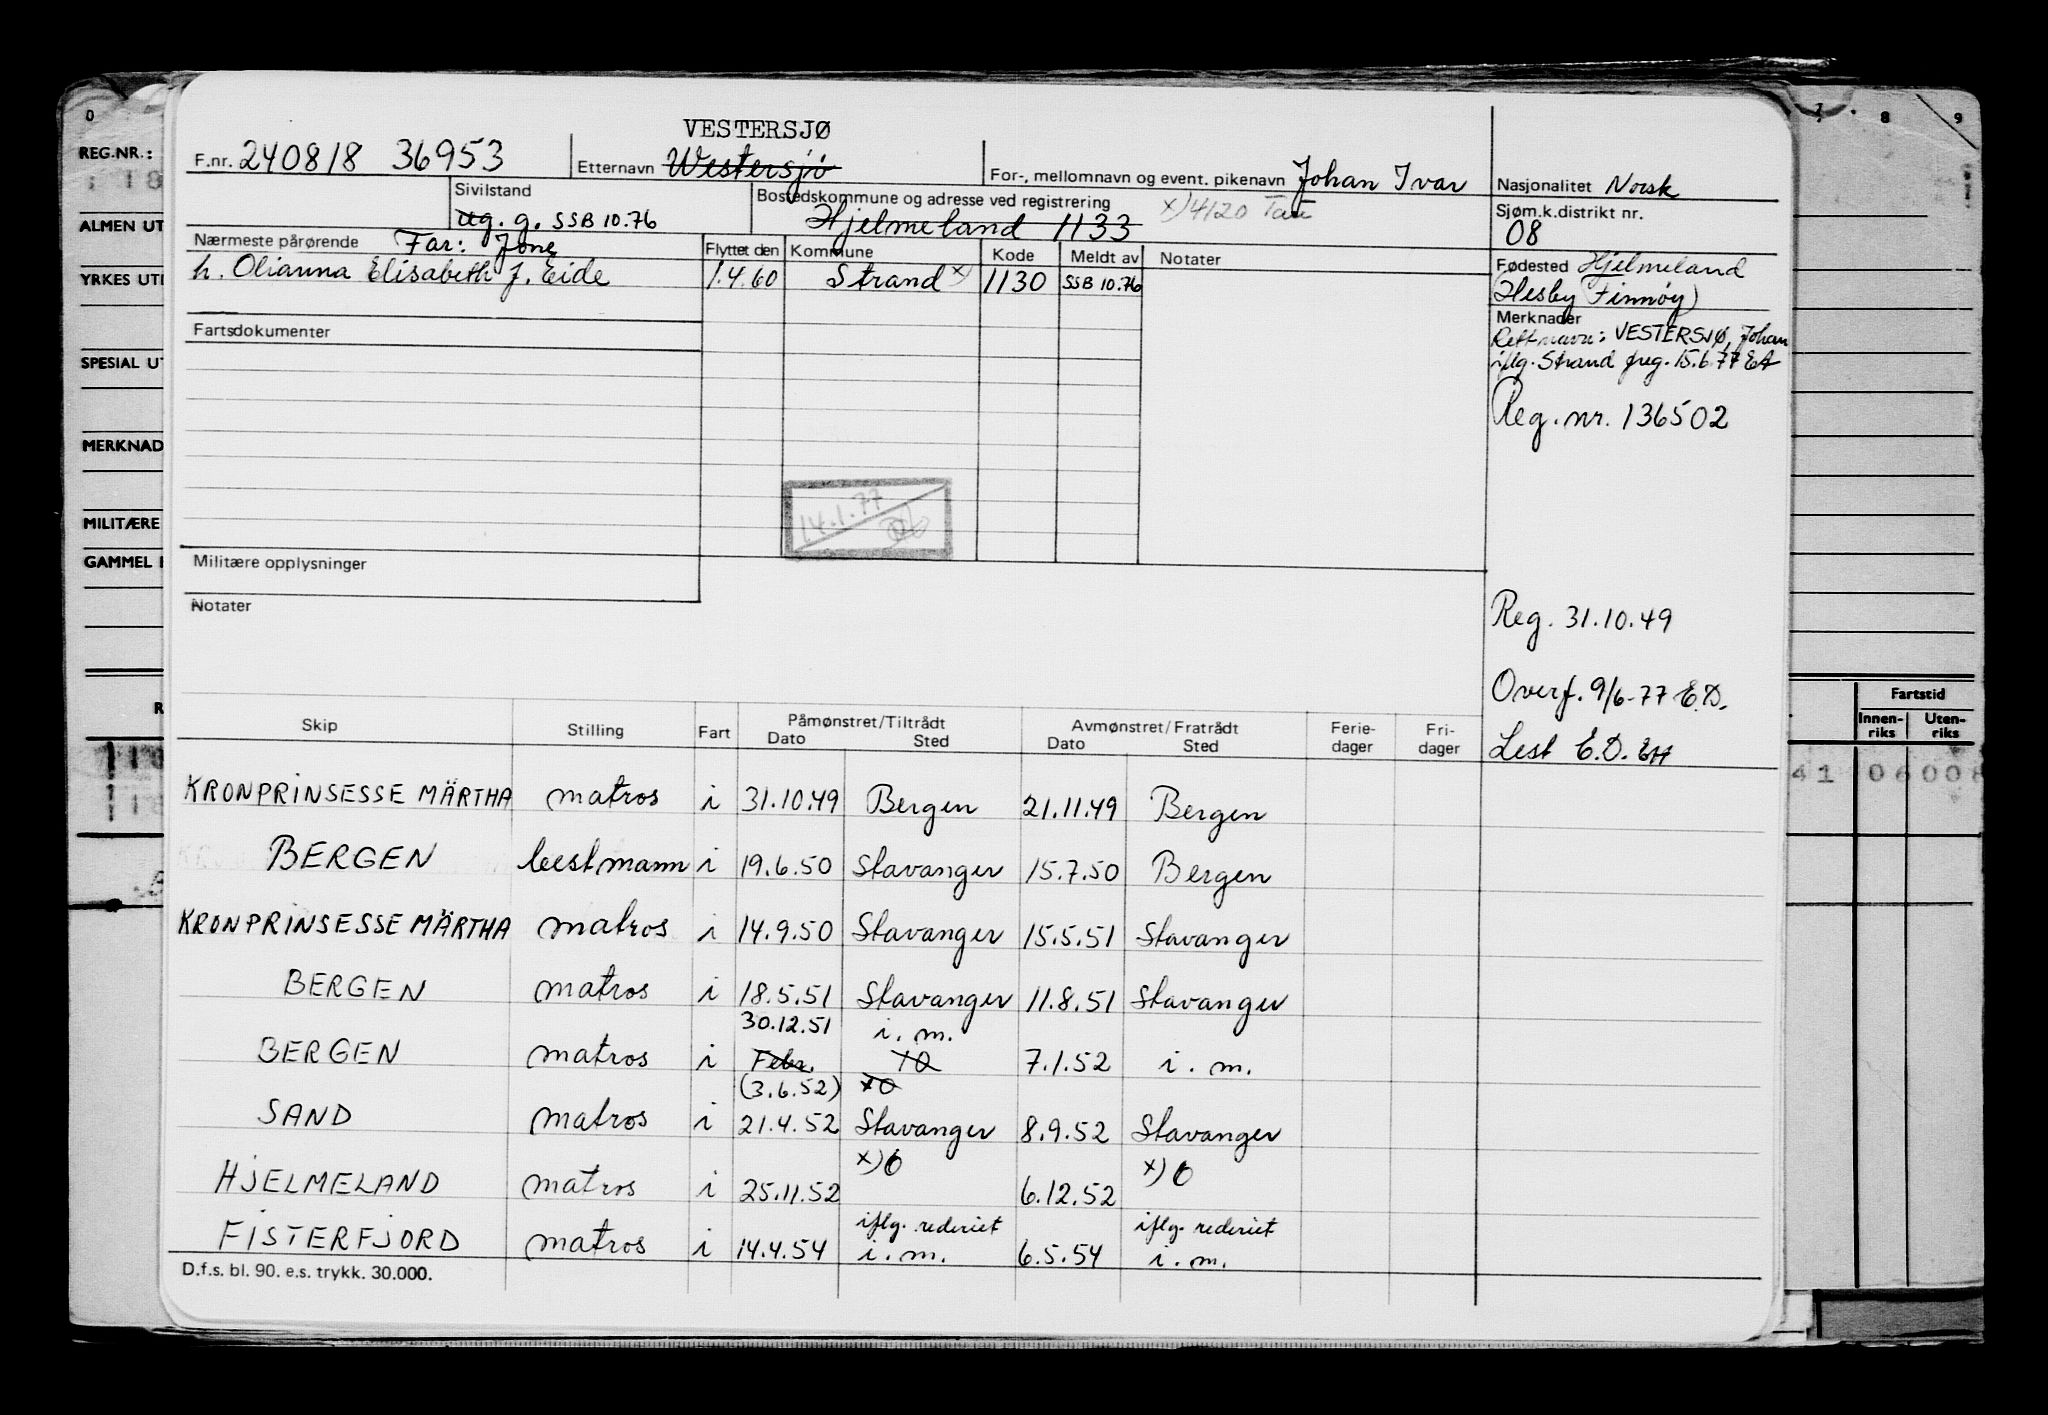 VESTERSJØ
F.nr. 240818 36953 Etternavn Westersjö For-, mellomnavn og event. pikenavn Johan Ivar Nasjonalitet Norsk
Sivilstand ug. g. SSB 10.76 Bostedskommune og adresse ved registrering Hjelmeland 1133 x) 4120 Tau Sjøm.k.distrikt nr. 08
Nærmeste pårørende Far: Jone Flyttet den Kommune Kode Meldt av Notater Fødested Hjelmeland
h. Olianna Elisabeth J. Eide 1.4.60 Strand x) 1130 SSB 10.76 Hesby Finnøy)
Fartsdokumenter
Merknader
Rett navn: VESTERSJØ, Johan
iflg. Strand freg. 15.6.77 EA
Reg. nr. 136502
14.1.77
Militære opplysninger
Notater
Reg. 31.10.49
Overf. 9/6-77 E.D.
Lest E.D. EA
Skip Stilling Fart Påmønstret/Tiltrådt Avmønstret/Fratrådt Ferie-dager Fri-dager
Dato Sted Dato Sted
KRONPRINSESSE MÄRTHA matros i 31.10.49 Bergen 21.11.49 Bergen
BERGEN lestmann i 19.6.50 Stavanger 15.7.50 Bergen
KRONPRINSESSE MÄRTHA matros i 14.9.50 Stavanger 15.5.51 Stavanger
BERGEN matros i 18.5.51 Stavanger 11.8.51 Stavanger
30.12.51 i. m.
BERGEN matros i Febr. 7.1.52 i. m.
(3.6.52)
SAND matros i 21.4.52 Stavanger 8.9.52 Stavanger
x) 0 x) 0
HJELMELAND matros i 25.11.52 6.12.52
iflg. rederiet iflg. rederiet
FISTERFJORD matros i 14.4.54 i. m. 6.5.54 i. m.
D.f.s. bl. 90. e.s. trykk. 30.000.
0
REG.NR.:
ALMEN UT
YRKES UT
SPESIAL UT
MERKNAD
MILITÆRE
GAMMEL
7 8 9
Fartstid
Innen-riks Uten-riks
41 06 00